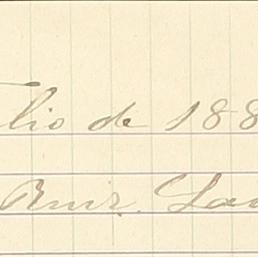 Julio de 188
Ruiz. La